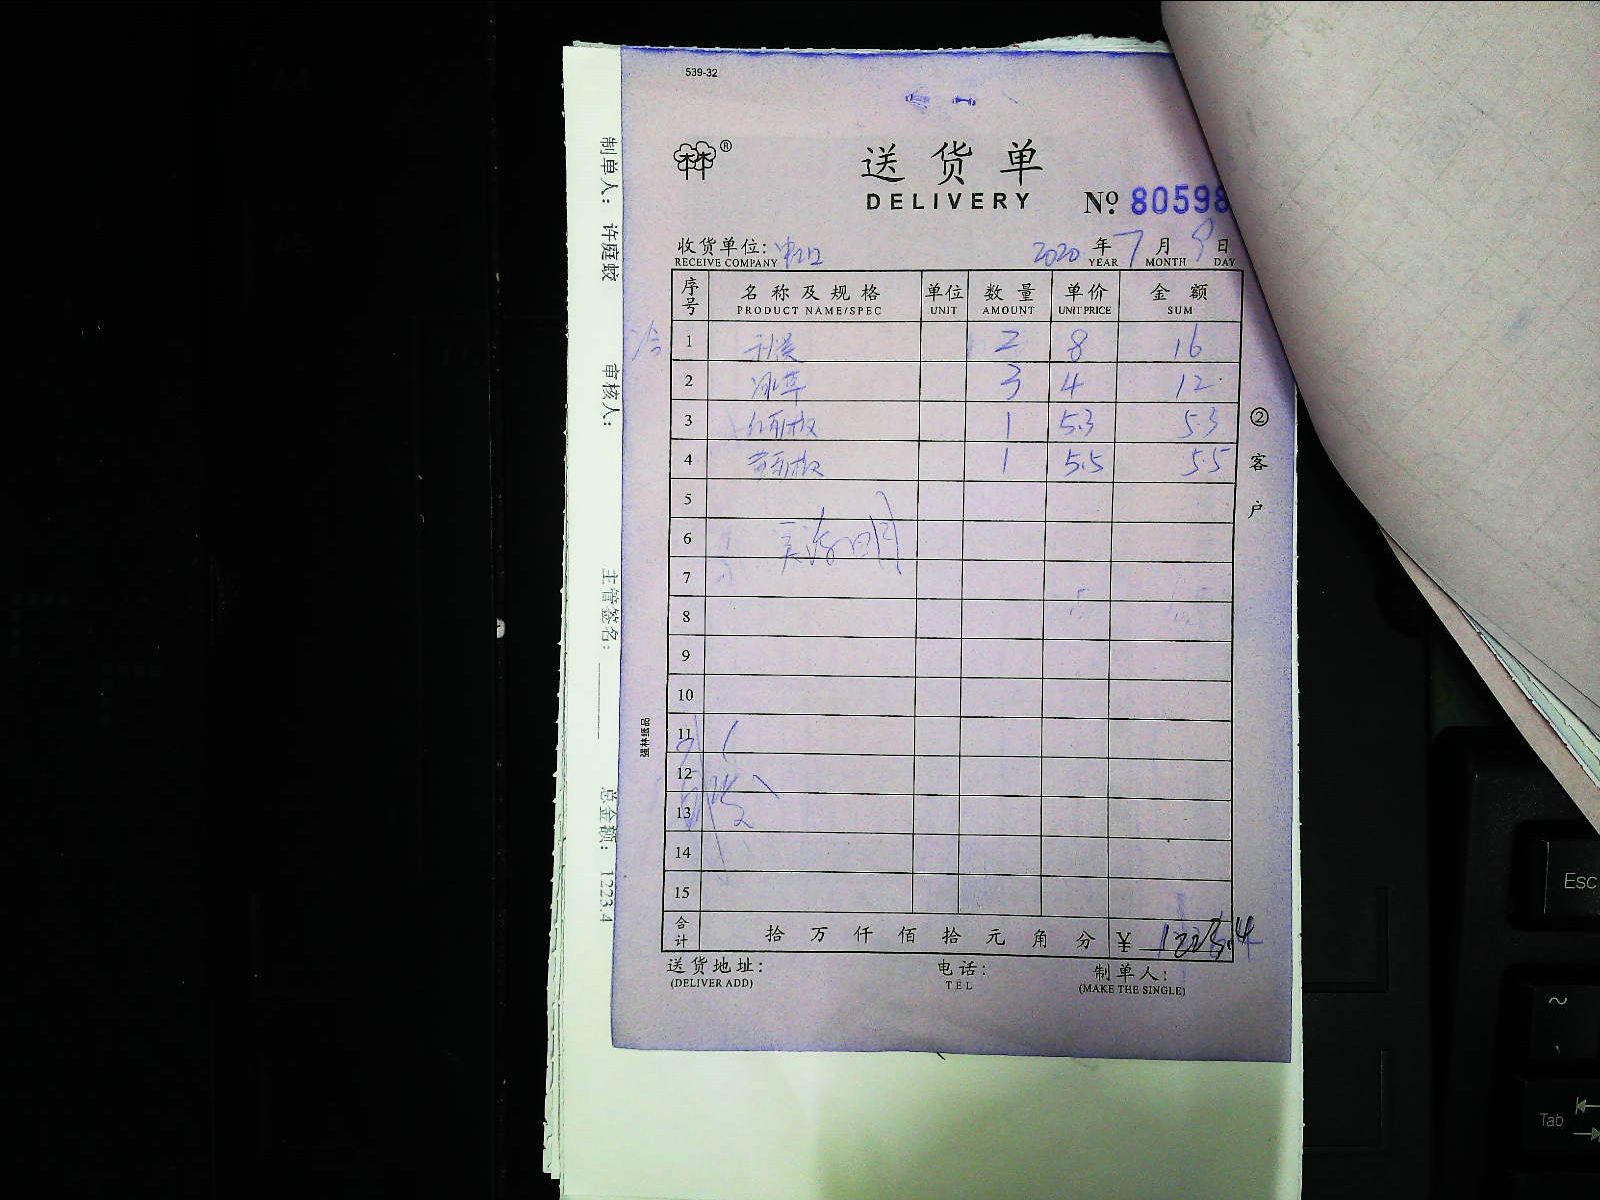 539-32
林林®
送货单
DELIVERY
No. 80598
收货单位:
RECEIVE COMPANY
2020 年 7 月 9 日
YEAR MONTH DAY
序号 名称及规格 单位 数量 单价 金额
PRODUCT NAME/SPEC UNIT AMOUNT UNIT PRICE SUM
冷
1 2 8 16
2 冰草 3 4 12
3 红彩椒 1 5.3 5.3
4 黄彩椒 1 5.5 5.5
5
6
7
8
9
10
11
12
13
14
15
合计 拾 万 仟 佰 拾 元 角 分 ¥ 1223.4
送货地址: 电话: 制单人:
(DELIVER ADD) TEL (MAKE THE SINGLE)
②客户
强林纸品
制单人: 许庭蛟 审核人: 主管签名: 总金额: 1223.4
Esc
~
Tab